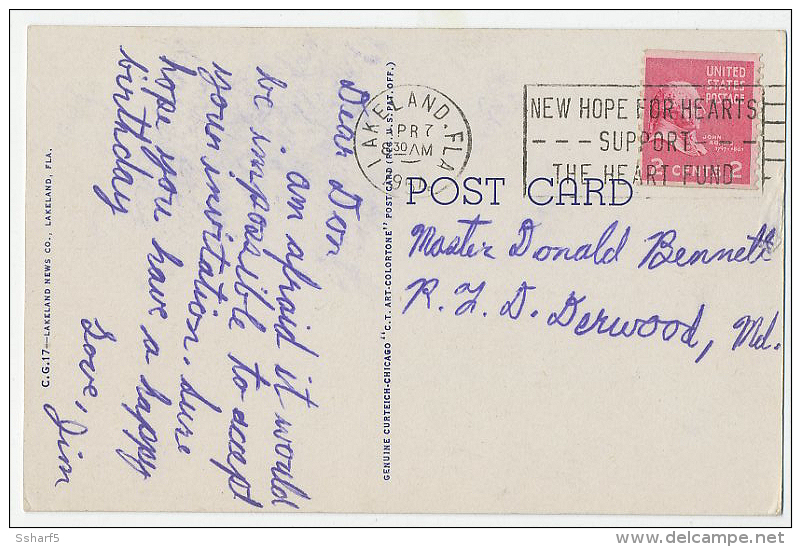 Dear Don
I am afraid it would
be impossible to accept
your invitation. Sure
hope you have a happy
birthday
Love, Jim
C.G.17—LAKELAND NEWS CO., LAKELAND, FLA.
GENUINE CURTEICH-CHICAGO "C.T. ART-COLORTONE" POST CARD (REG. U.S. PAT. OFF.)
LAKELAND, FLA.
APR 7
30 AM
NEW HOPE FOR HEARTS
SUPPORT
THE HEART FUND
UNITED
STATES
POSTAGE
JOHN
2 CENTS 2
POST CARD
Master Donald Bennett
R. F. D. Derwood, Md.
Ssharf5
delcampe.net